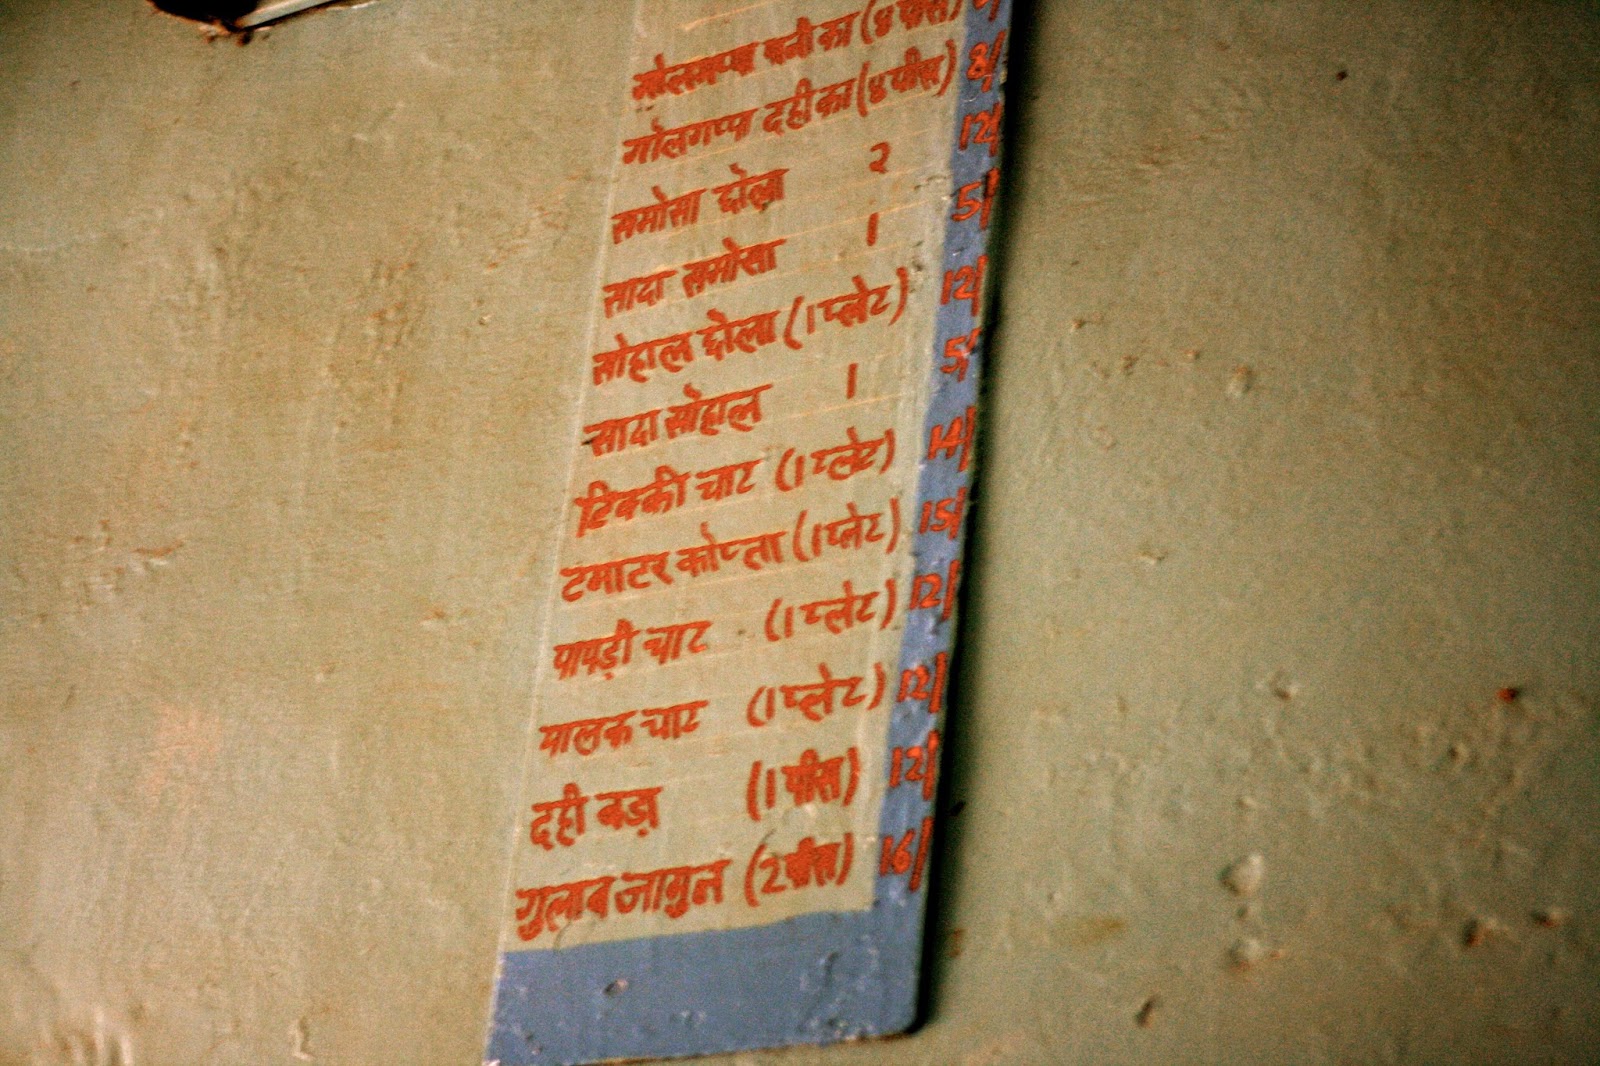 गोलगप्पा पानी का (४ पीस)
गोलगप्पा दही का (४ पीस) 8/
समोसा छोला २ 12/
सादा समोसा 1 5/
सोहाल छोला (1 प्लेट) 12/
सादा सोहाल 1 5/
टिक्की चाट (1 प्लेट) 14/
टमाटर कोप्ता (1 प्लेट) 15/
पापड़ी चाट (1 प्लेट) 12/
पालक चाट (1 प्लेट) 12/
दही बड़ा (1 पीस) 12/
गुलाब जामुन (2 पीस) 16/